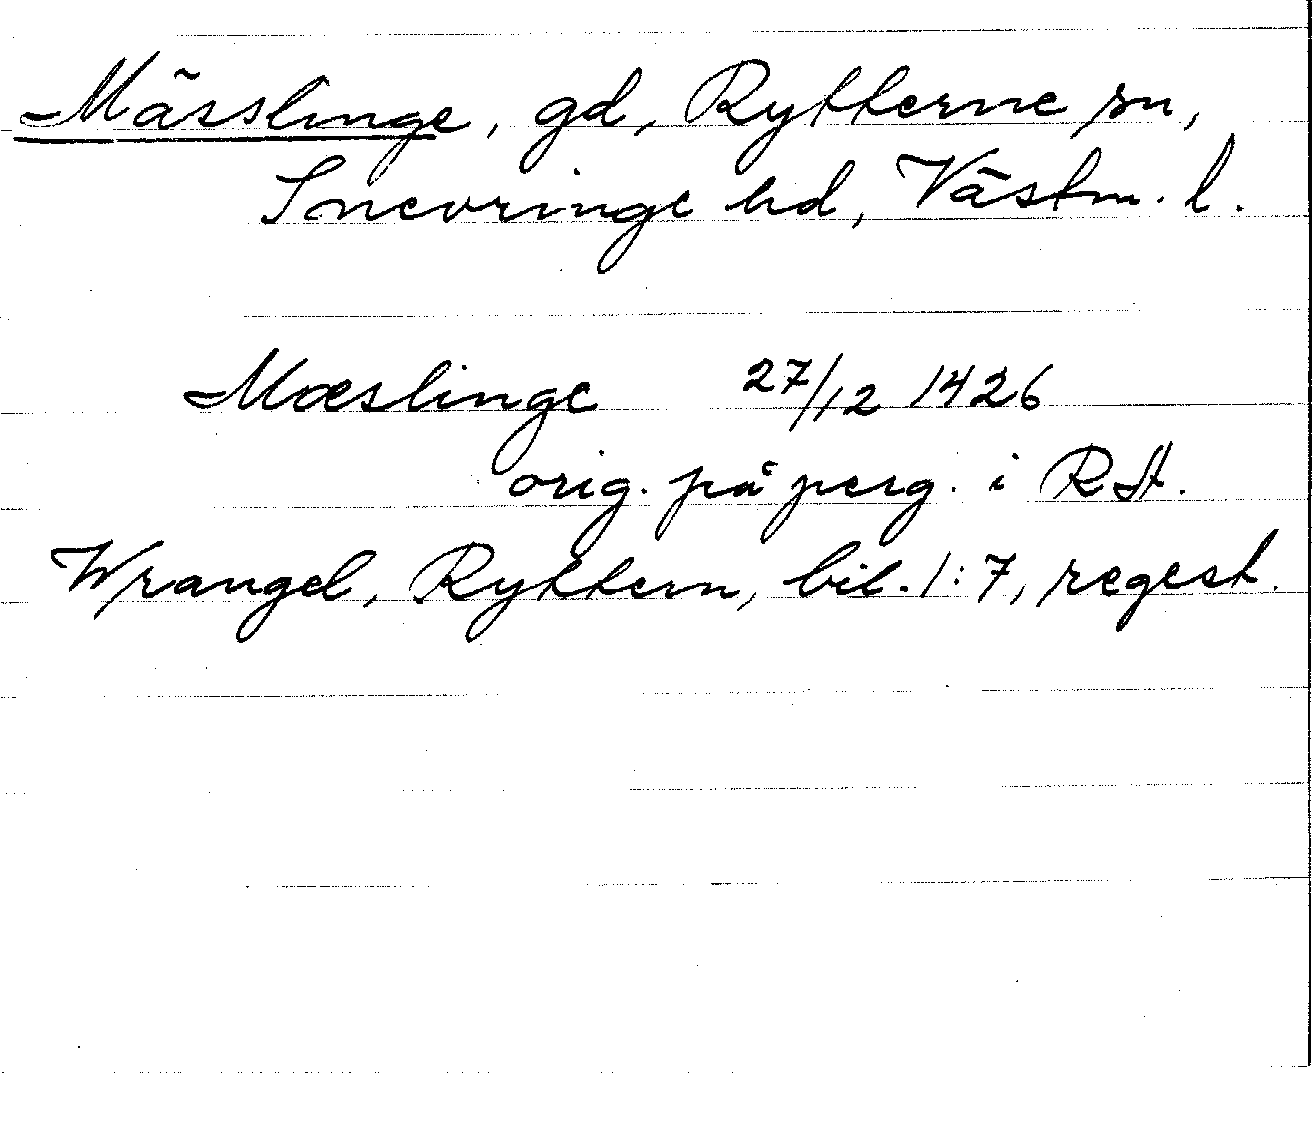 Mässlinge, gd, Rytterne sn,
Snevringe hd, Västm. l.
Mæslinge 27/12 1426
orig. på perg. i RA.
Wrangel, Ryttern, bil. 1:7, regest.